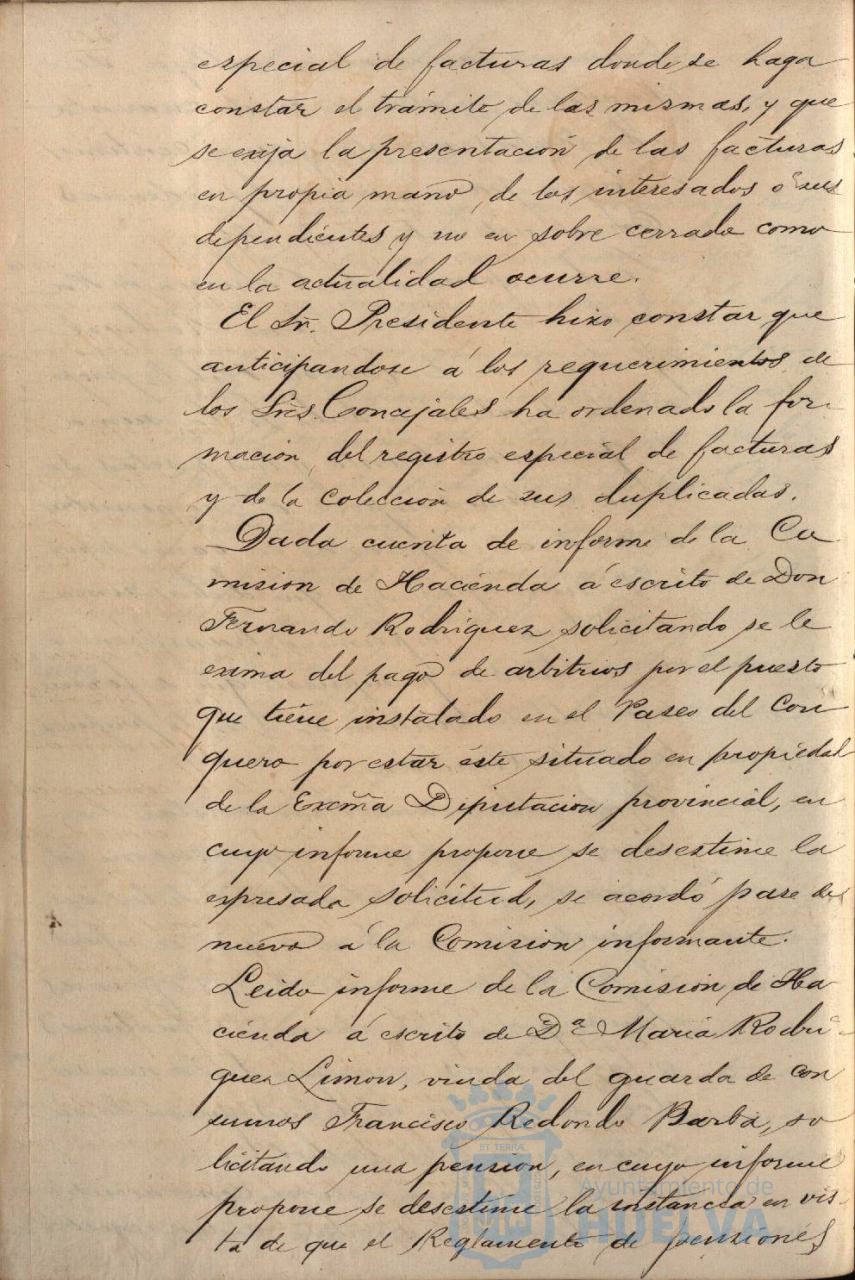 especial de facturas donde se haga
constar el trámite de las mismas, y que
se exija la presentación de las facturas
en propia mano, de los interesados ó sus
dependientes y no en sobre cerrado como
en la actualidad ocurre.
El Sr. Presidente hizo constar que
anticipandose á los requerimientos de
los Sres. Concejales ha ordenado la for-
macion, del registro especial de facturas
y de la colección de sus duplicadas.
Dada cuenta de informe de la Co
mision de Hacienda á escrito de Don
Fernando Rodriguez solicitando se le
exima del pago de arbitrios por el puesto
que tiene instalado en el Paseo del Con
quero por estar éste situado en propiedad
de la Excma Diputacion provincial, en
cuyo informe propone se desestime la
expresada solicitud, se acordó pase de
nuevo á la Comision informante.
Leido informe de la Comisión de Ha
cienda á escrito de Dª Maria Rodri-
guez Limon, viuda del guarda de con
sumos Francisco Redondo Barba, so
licitando una pensión, en cuyo informe
propone se desestime la instancia en vis-
ta de que el Reglamento de pensiones
ET TERRA
Ayuntamiento de
HUELVA